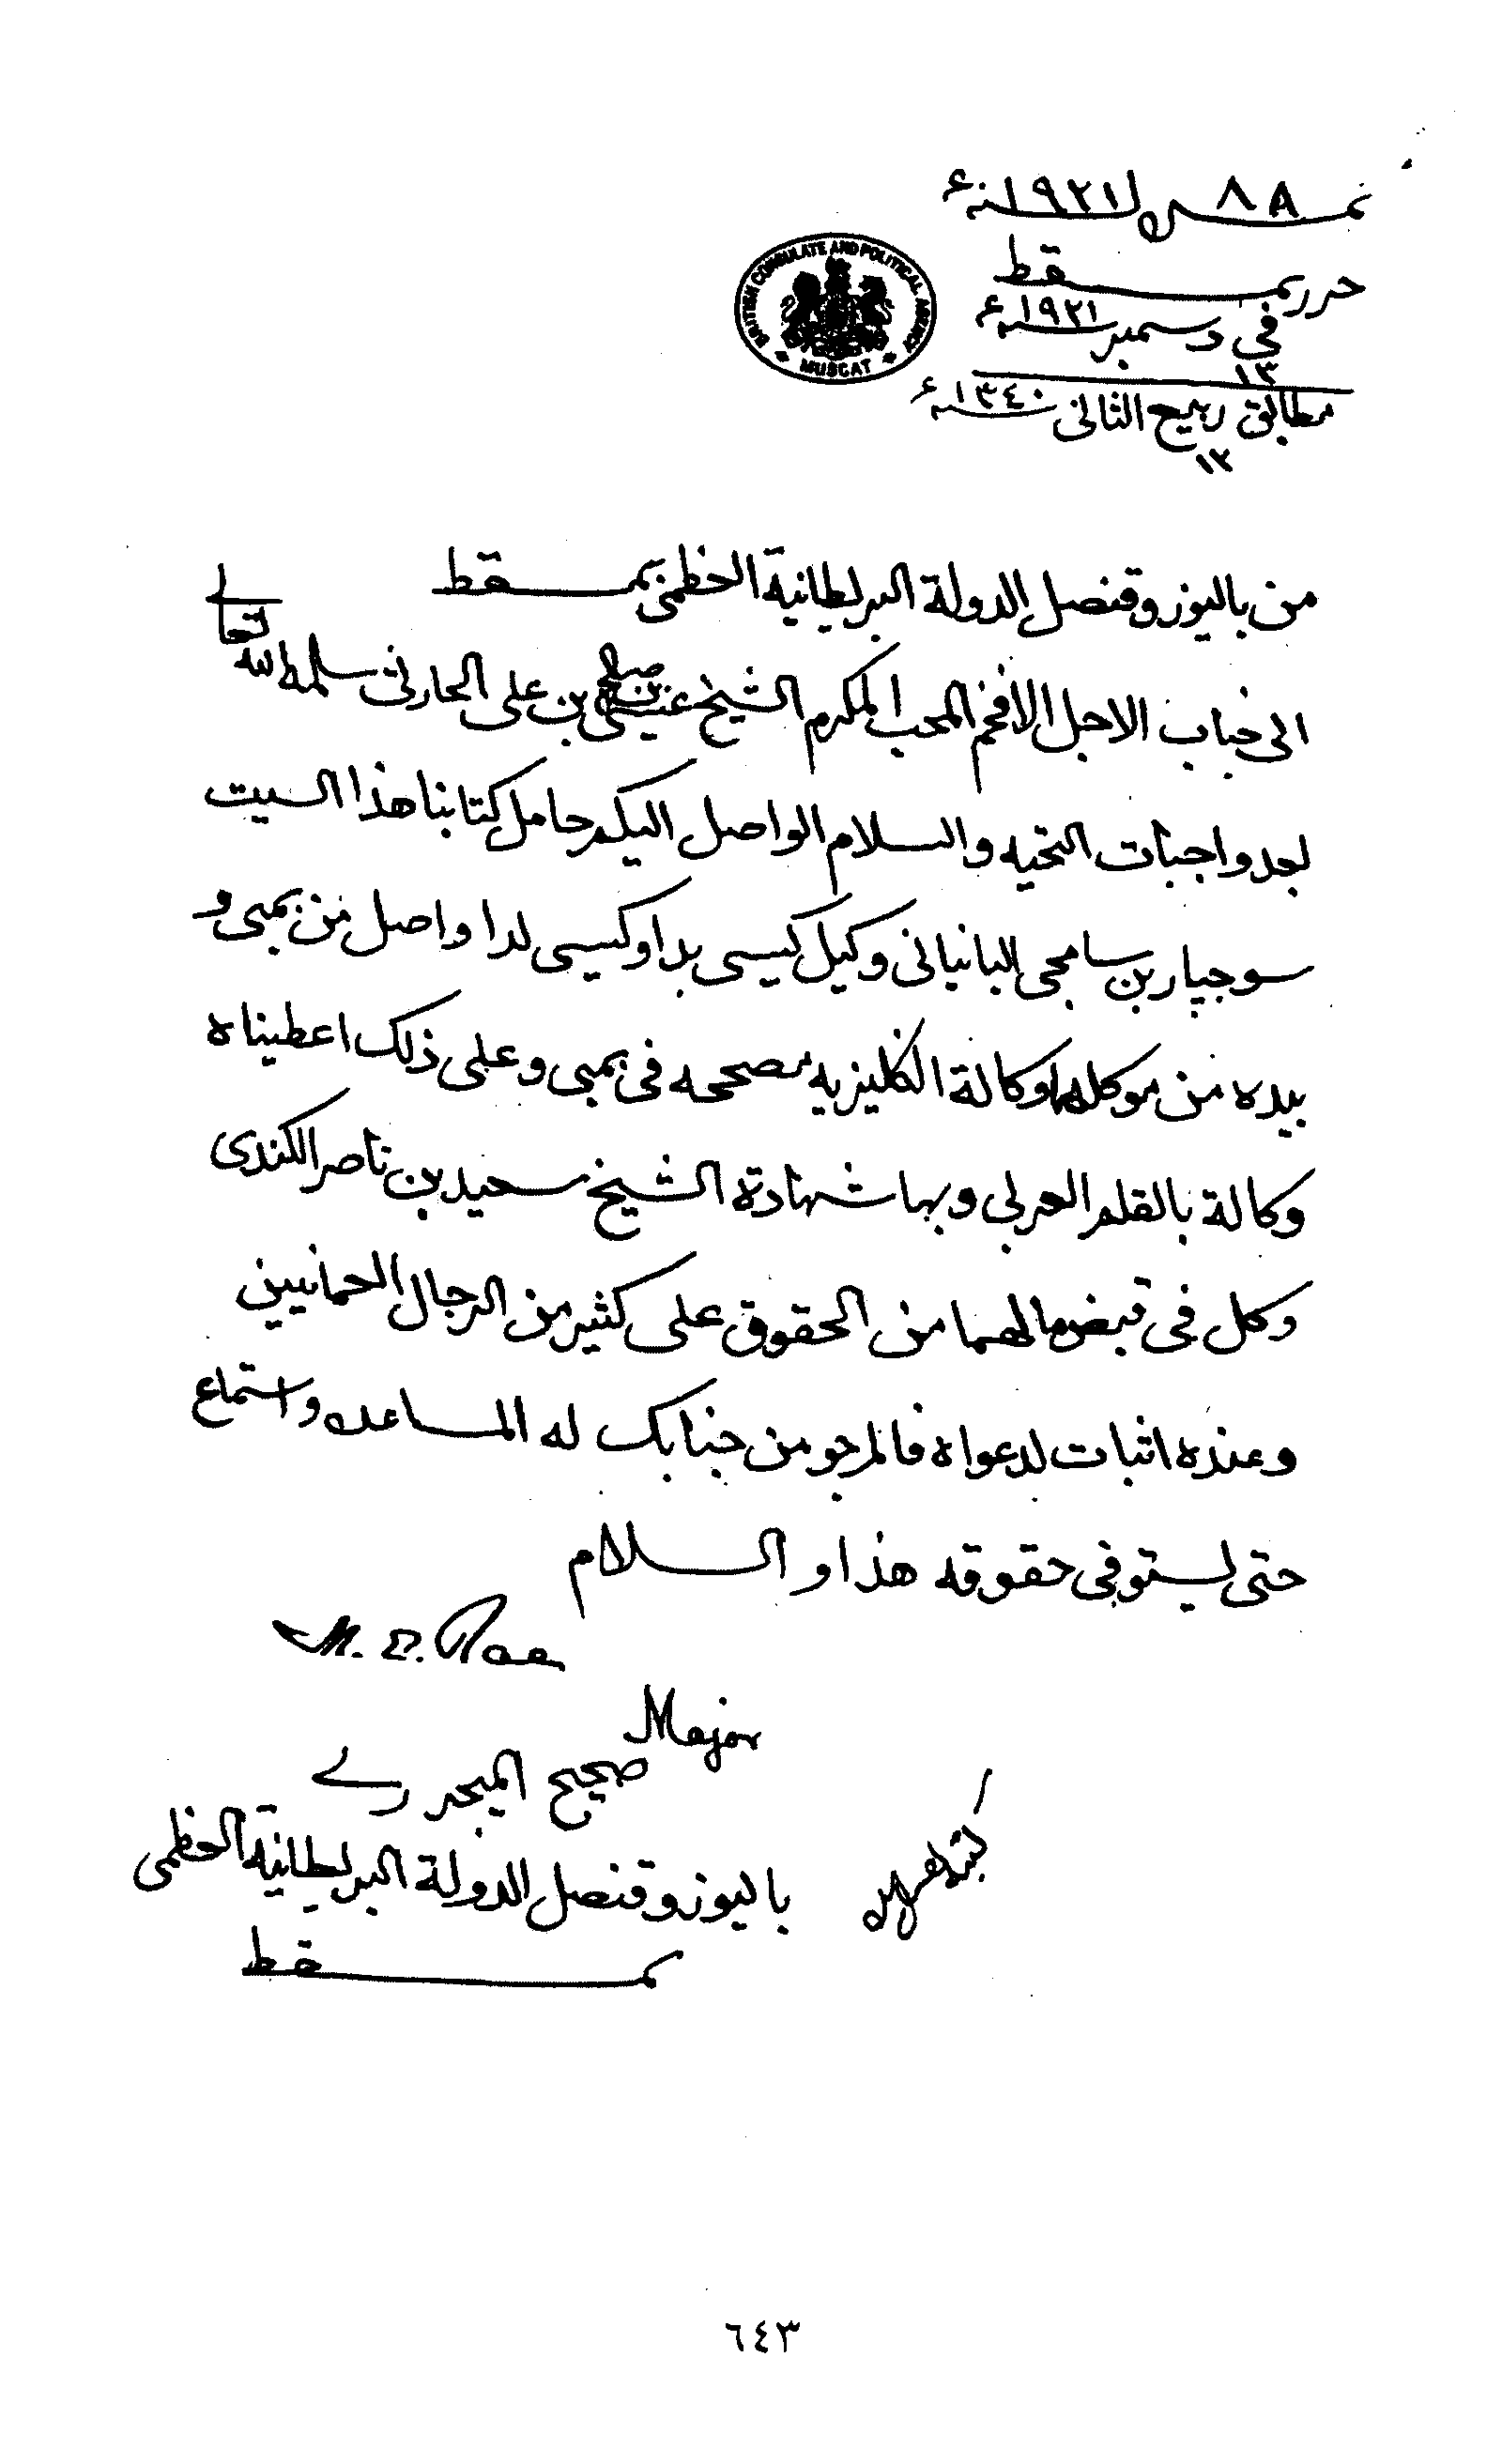 نمبر ٨٨ سنة ١٩٢١ء
BRITISH CONSULATE AND POLITICAL AGENCY
MUSCAT
حرر بمسقط
في ١٣ دسمبر سنة ١٩٢١ء
مطابق ١٣ ربيع الثاني سنة ١٣٤٠ء
من باليوز وقنصل الدولة البرلطانية العظمى بمسقط
الى جناب الاجل الافخم المحب المكرم الشيخ عيسى بن صالح بن على الحارثي سلمه الله تعالے
بعد واجبات التحيه والسلام الواصل اليكم حامل كتابنا هذا السيت
سوجپار بن سامجي البانياني وكيل كيسى بدا وكيسى لدا واصل من بمبى و
بيده من موكله وكالة انكليزيه مصححه فى بمبى وعلى ذلك اعطيناه
وكالة بالقلم العربي وبها شهادة الشيخ سعيد بن ناصر الكندى
وكل فى قبض ما لهما من الحقوق على كثير من الرجال العمانيين
وعنده اثبات لدعواه فالمرجو من جنابك له المساعده واستماع
حتى يستوفي حقوقه هذا والسلام
M. E. Rae
Major
صحيح الميجر رے
باليوز وقنصل الدولة البرلطانية العظمى
بمسقط
٦٤٣